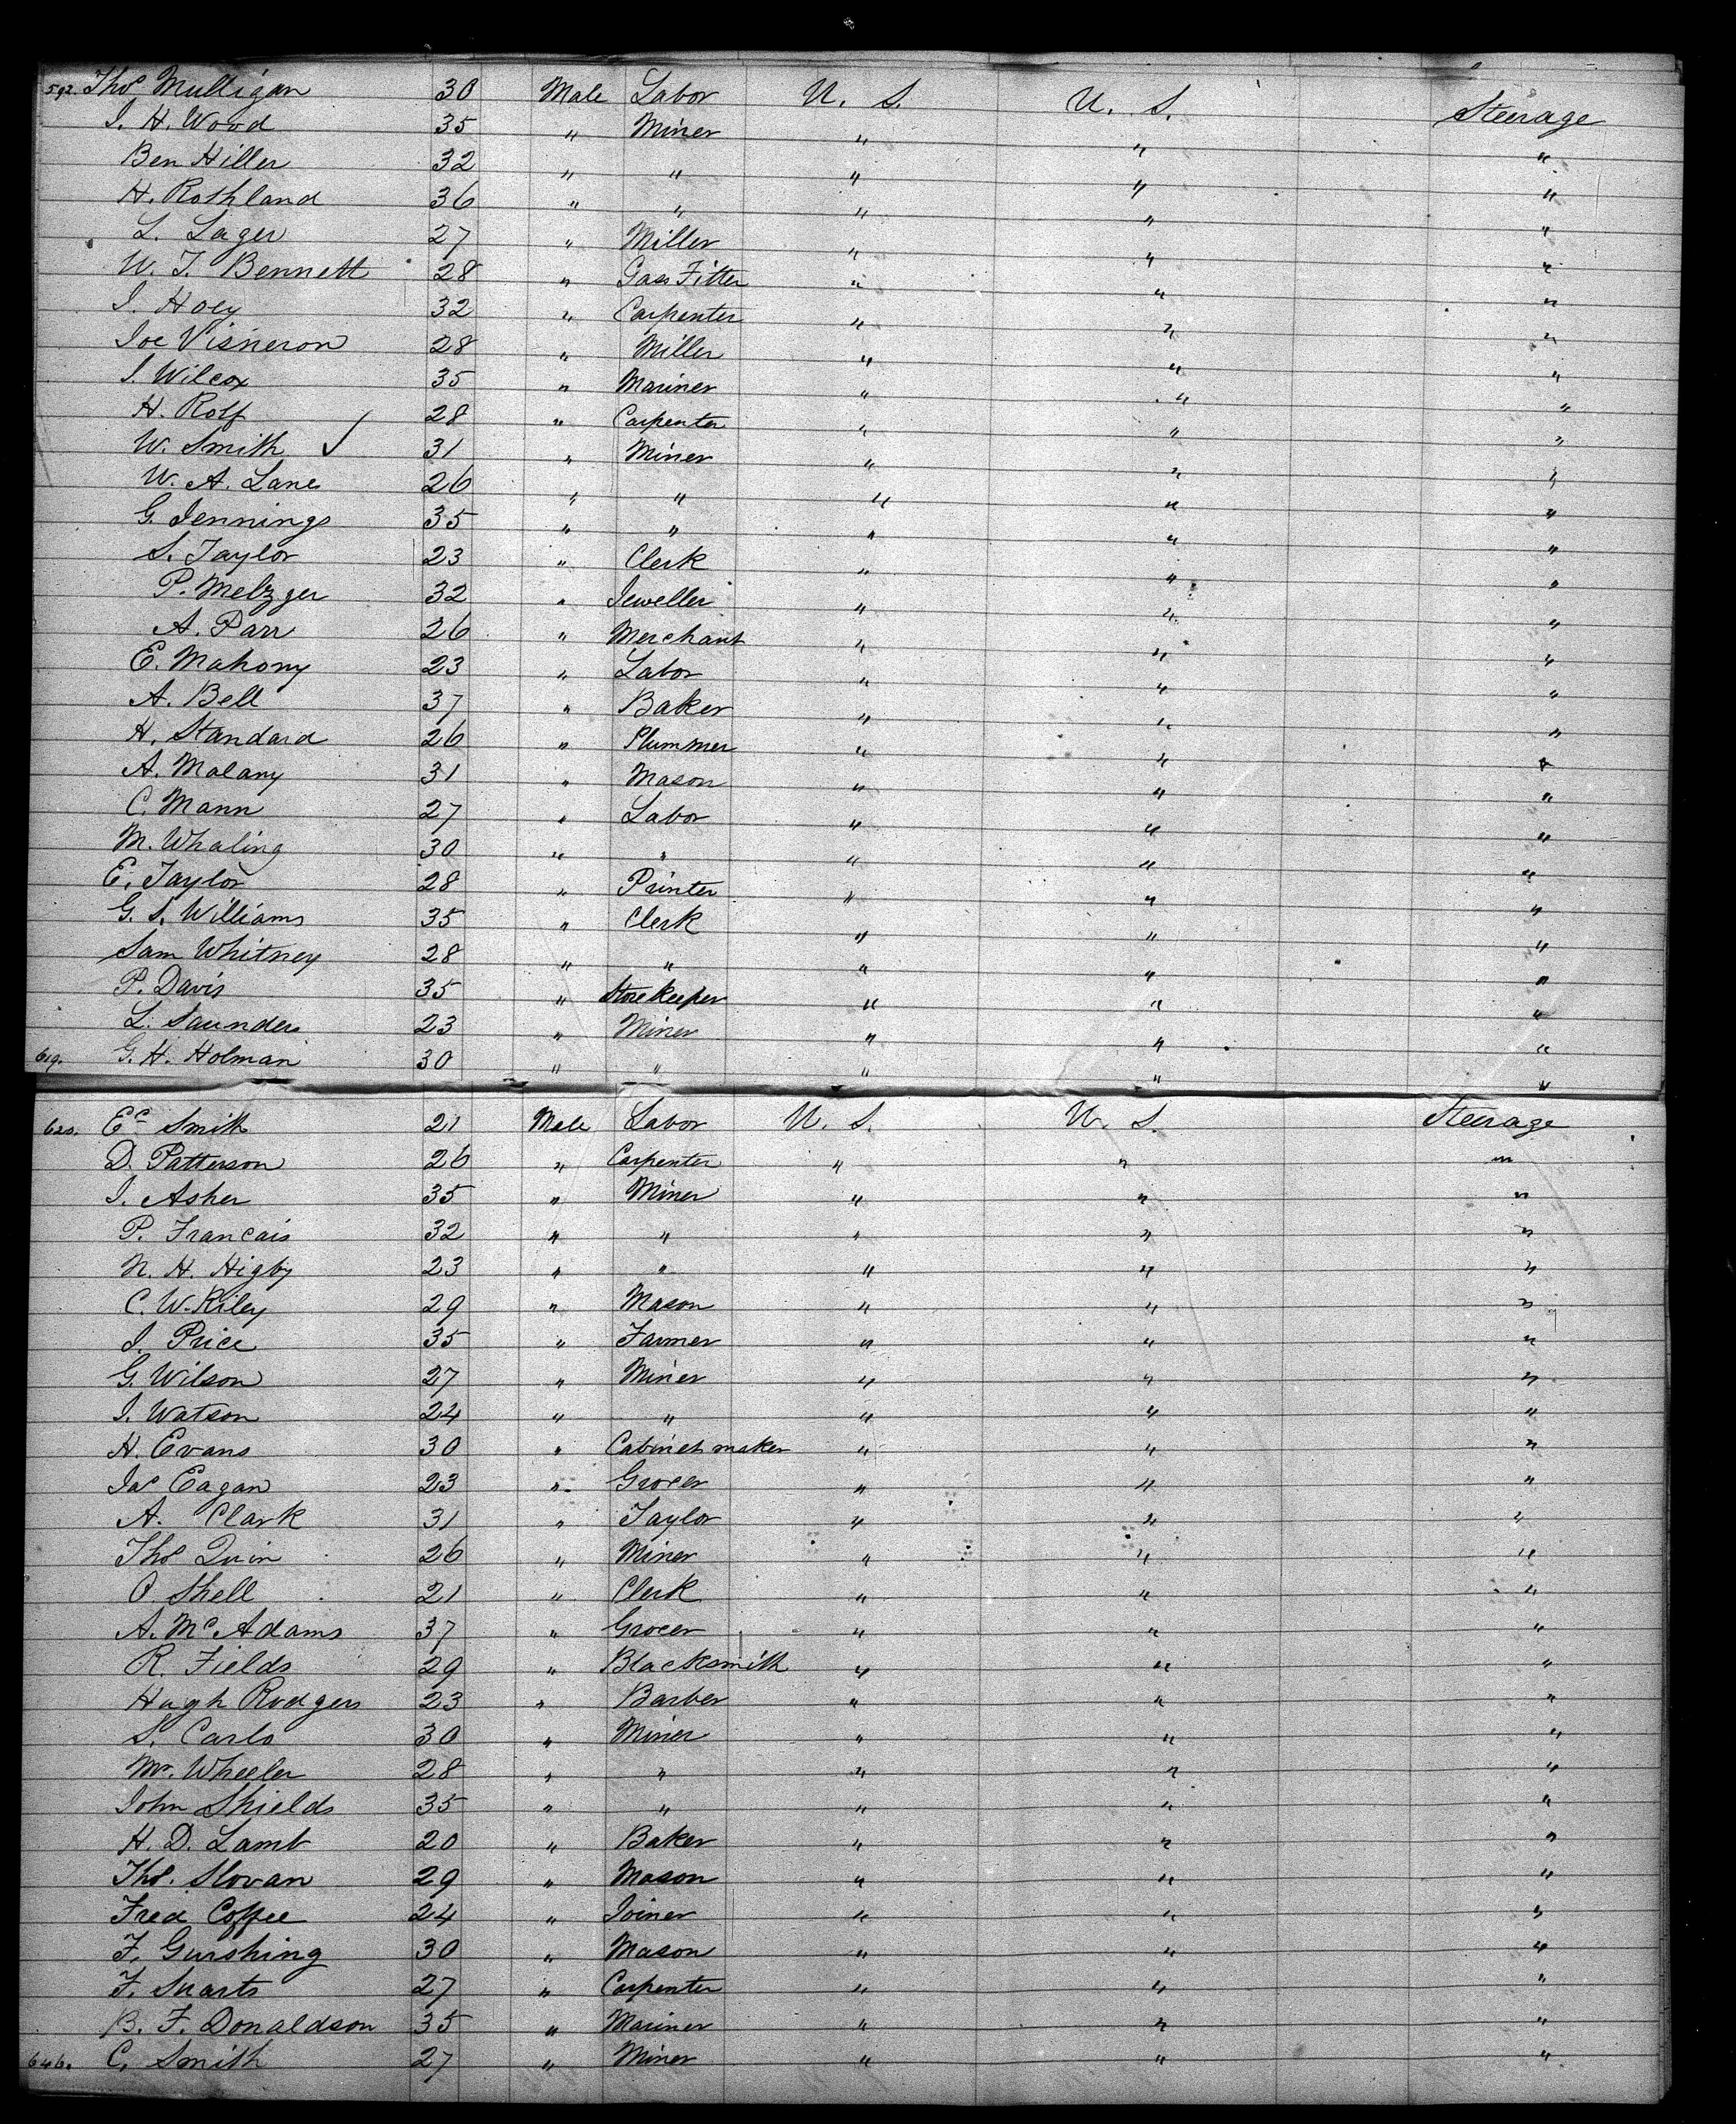 592. Thos Mulligan 30 Male Labor U. S. U. S. Steerage
J. H. Wood 35 " Miner " " "
Ben Hiller 32 " " " " "
H. Rothland 36 " " " " "
L. Lager 27 " Miller " " "
W. T. Bennett 28 " Gass Fitter " " "
J. Hoey 32 " Carpenter " " "
Joe Visneron 28 " Miller " " "
J. Wilcox 35 " Mariner " " "
H. Rolf 28 " Carpenter " " "
W. Smith ✓ 31 " Miner " " "
W. A. Lane 26 " " " " "
G. Jennings 35 " " " " "
S. Taylor 23 " Clerk " " "
P. Melzger 32 " Jeweller " " "
A. Parr 26 " Merchant " " "
E. Mahony 23 " Labor " " "
A. Bell 37 " Baker " " "
H. Standard 26 " Plummer " " "
A. Malany 31 " Mason " " "
C. Mann 27 " Labor " " "
M. Whaling 30 " " " " "
E. Taylor 28 " Printer " " "
G. S. Williams 35 " Clerk " " "
Sam Whitney 28 " " " " "
P. Davis 35 " Store Keeper " " "
L. Saunders 23 " Miner " " "
619. G. H. Holman 30 " " " " "
620. Ec Smith 21 Male Labor U. S. U. S. Steerage
D. Patterson 26 " Carpenter " " "
J. Asher 35 " Miner " " "
P. Francais 32 " " " " "
N. H. Higby 23 " " " " "
C. W. Riley 29 " Mason " " "
J. Price 35 " Farmer " " "
G. Wilson 27 " Miner " " "
J. Watson 24 " " " " "
H. Evans 30 " Cabinet maker " " "
Jas Eagan 23 " Grocer " " "
A. Clark 31 " Taylor " " "
Thos Quin 26 " Miner " " "
O Shell 21 " Clerk " " "
A. Mc Adams 37 " Grocer " " "
R. Fields 29 " Blacksmith " " "
Hugh Rodgers 23 " Barber " " "
S. Carlo 30 " Miner " " "
Mr. Wheeler 28 " " " " "
John Shields 35 " " " " "
H. D. Lamb 20 " Baker " " "
Thos. Slovan 29 " Mason " " "
Fred Coffee 24 " Joiner " " "
F. Gurshing 30 " Mason " " "
F. Suarts 27 " Carpenter " " "
B. F. Donaldson 35 " Mariner " " "
646. C. Smith 27 " Miner " " "